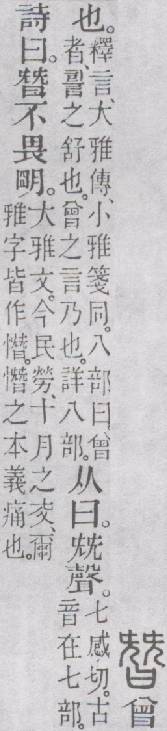 朁曾
也。釋言、大雅傳、小雅箋同。八部曰曾者、䛐之舒也。曾之言乃也。詳八部。从曰。兓聲。七感切。古音在七部。
詩曰。朁不畏朙。大雅文。今民勞、十月之交、爾雅字皆作憯。憯之本義痛也。